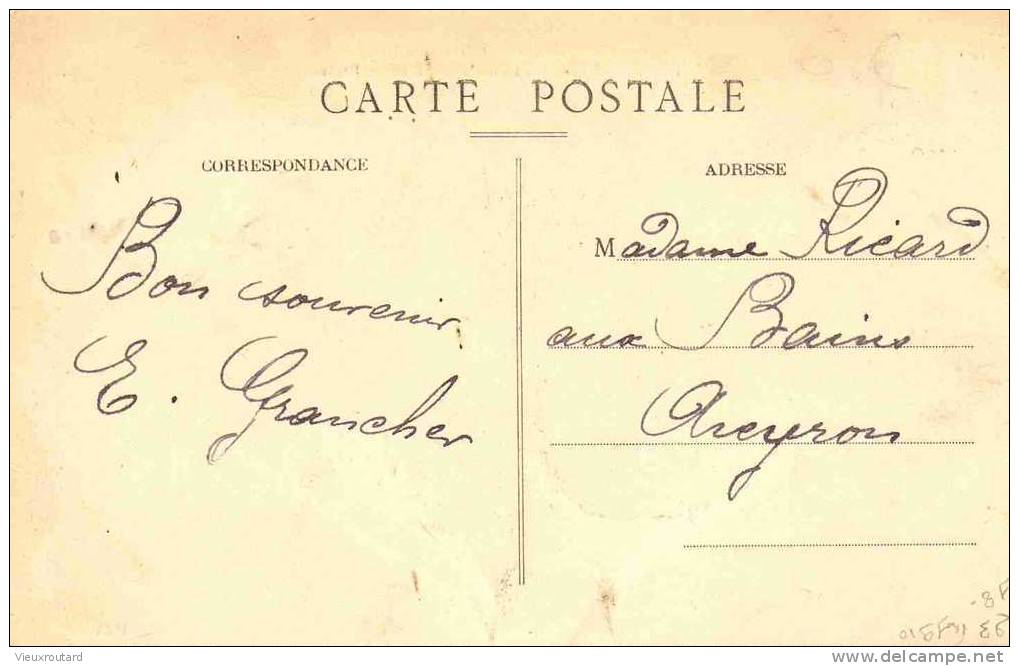 CARTE POSTALE
CORRESPONDANCE
Bon souvenir
E. Grancher
ADRESSE
Madame Ricard
aux Bains
Vieuxroutard
delcampe.net